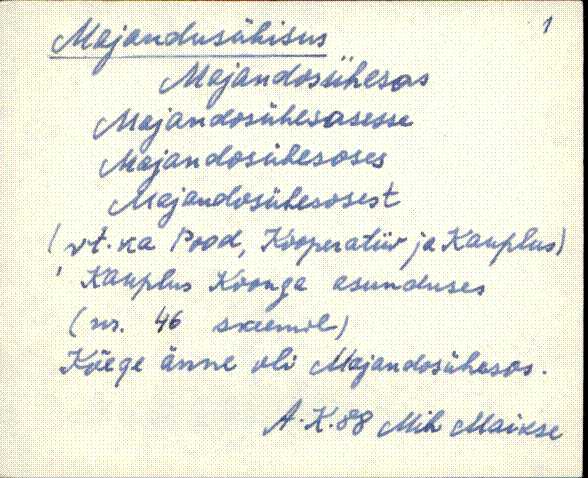 1
Majandusühisus
Majandosühesos
Majandosühesosesse
Majandosühesoses
Majandosühesosest
(vt. ka Pood, Kooperatiiv ja Kauplus)
Kauplus Koonga asunduses
(nr. 46 skeemil)
Kõege änne oli Majandosühesos.
A. K. 88 Mih Maikse